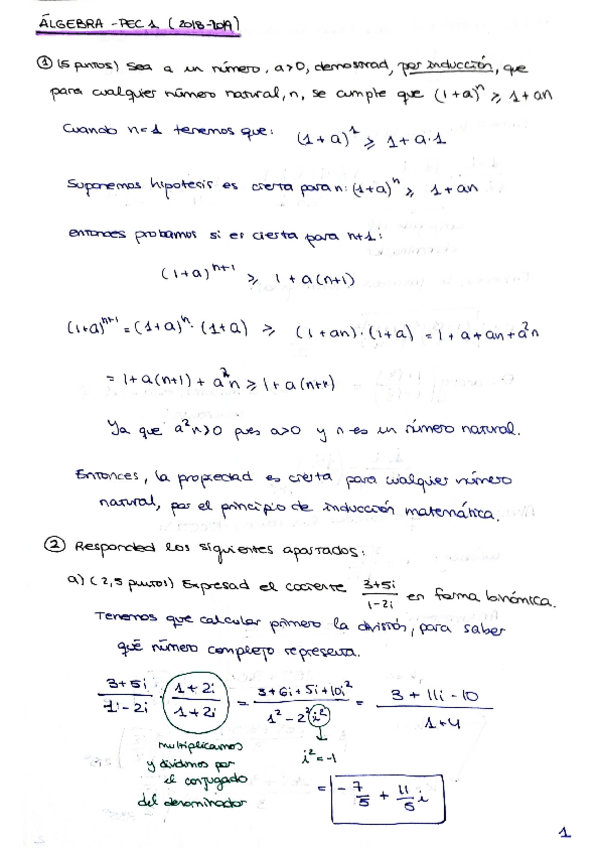 ÁLGEBRA - PEC 1 (2018-2019)
① (5 puntos) Sea a un número, a>0, demostrad, por inducción, que
para cualquier número natural, n, se cumple que (1+a)^n ≥ 1+an
Cuando n=1 tenemos que: (1+a)^1 ≥ 1+a·1
Suponemos hipotesis es cierta para n: (1+a)^n ≥ 1+an
entonces probamos si es cierta para n+1:
(1+a)^{n+1} ≥ 1+a(n+1)
(1+a)^{n+1} = (1+a)^n · (1+a) ≥ (1+an)·(1+a) = 1+a+an+a²n
= 1+a(n+1) + a²n ≥ 1+a(n+1)
Ya que a²n>0 pues a>0 y n es un número natural.
Entonces, la propiedad es cierta para cualquier número
natural, por el principio de inducción matemática.
② Responded los siguientes apartados:
a) (2,5 puntos) Expresad el cociente (3+5i)/(1-2i) en forma binómica.
Tenemos que calcular primero la división, para saber
qué número complejo representa.
(3+5i)/(1-2i) · (1+2i)/(1+2i) = (3+6i+5i+10i²)/(1²-2²i²) = (3+11i-10)/(1+4)
multiplicamos
y dividimos por
el conjugado
del denominador
i²=-1
= -7/5 + 11/5 i
1